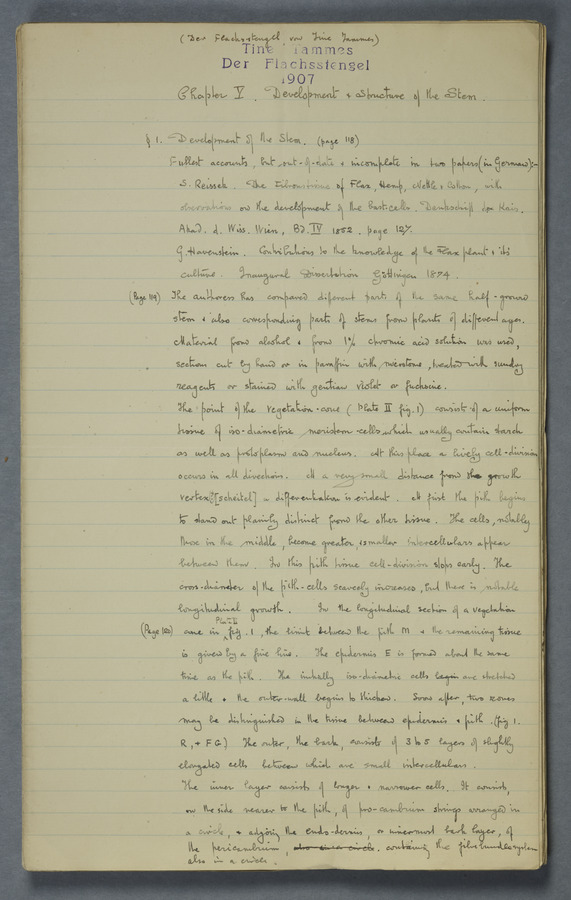 (Der Flachsstengel von Tine Tammes)
Tine Tammes
Der Flachsstengel
1907
Chapter V. Development & Structure of the Stem.
§ 1. Development of the Stem. (page 118)
Fullest accounts, but out-of-date & incomplete in two papers (in German):-
S. Reissek. The Fibrous tissue of Flax, Hemp, Nettle & Cotton, with
observations on the development of the bast-cells. Denkschrift der Kais.
Akad. d. Wiss. Wien, Bd. IV 1852. page 127.
G. Havenstein. Contributions to the knowledge of the Flax plant & its
culture. Inaugural Dissertation Göttingen 1874.
(Page 119) The authoress has compared different parts of the same half-grown
stem & also corresponding parts of stems from plants of different ages.
Material from alcohol & from 1% chromic acid solution was used,
sections cut by hand or in paraffin with microtome, treated with sundry
reagents or stained with gentian violet or fuchsine.
The point of the vegetation-cone (Plate II fig. 1) consists of a uniform
tissue of iso-diametric meristem-cells which usually contain starch
as well as protoplasm and nucleus. At this place a lively cell-division
occurs in all directions. At a very small distance from the growth
vertex [scheitel] a differentiation is evident. At first the pith begins
to stand out plainly distinct from the other tissue. The cells, notably
those in the middle, become greater, & smaller intercellulars appear
between them. In this pith tissue cell-division stops early. The
cross-diameter of the pith-cells scarcely increases, but there is notable
longitudinal growth. In the longitudinal section of a vegetation
(Page 120) cone in Plate II fig. 1, the limit between the pith M & the remaining tissue
is given by a fine line. The epidermis E is formed about the same
time as the pith. The initially iso-diametric cells begin are stretched
a little & the outer-wall begins to thicken. Soon after, two zones
may be distinguished in the tissue between epidermis & pith. (fig 1.
R, + FG) The outer, the bark, consists of 3 to 5 layers of slightly
elongated cells between which are small intercellulars.
The inner layer consists of longer & narrower cells. It consists,
on the side nearer to the pith, of pro-cambium strings arranged in
a circle, & adjoining the endo-dermis, or innermost bark layer, of
the pericambrium, also in a circle. containing the fibrebundlesystem
also in a circle.